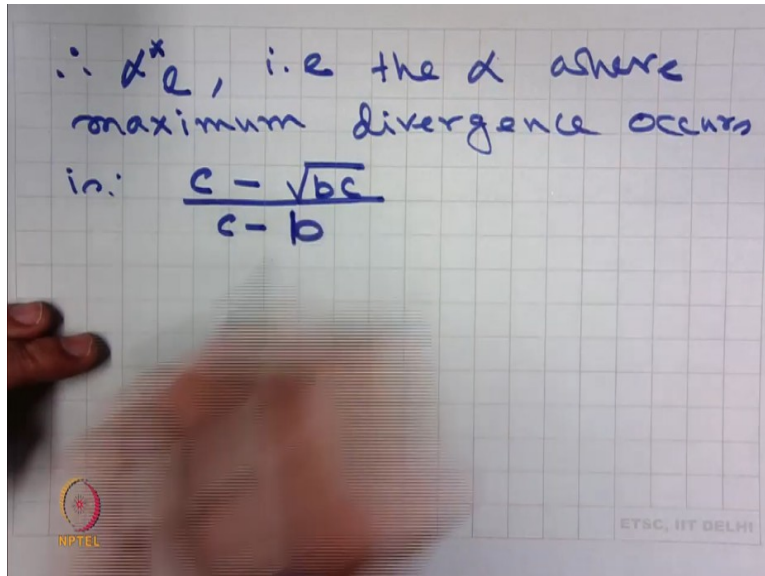 ∴ α*e, i.e the α where
maximum divergence occurs
is: c - √bc
c - b
NPTEL
ETSC, IIT DELHI